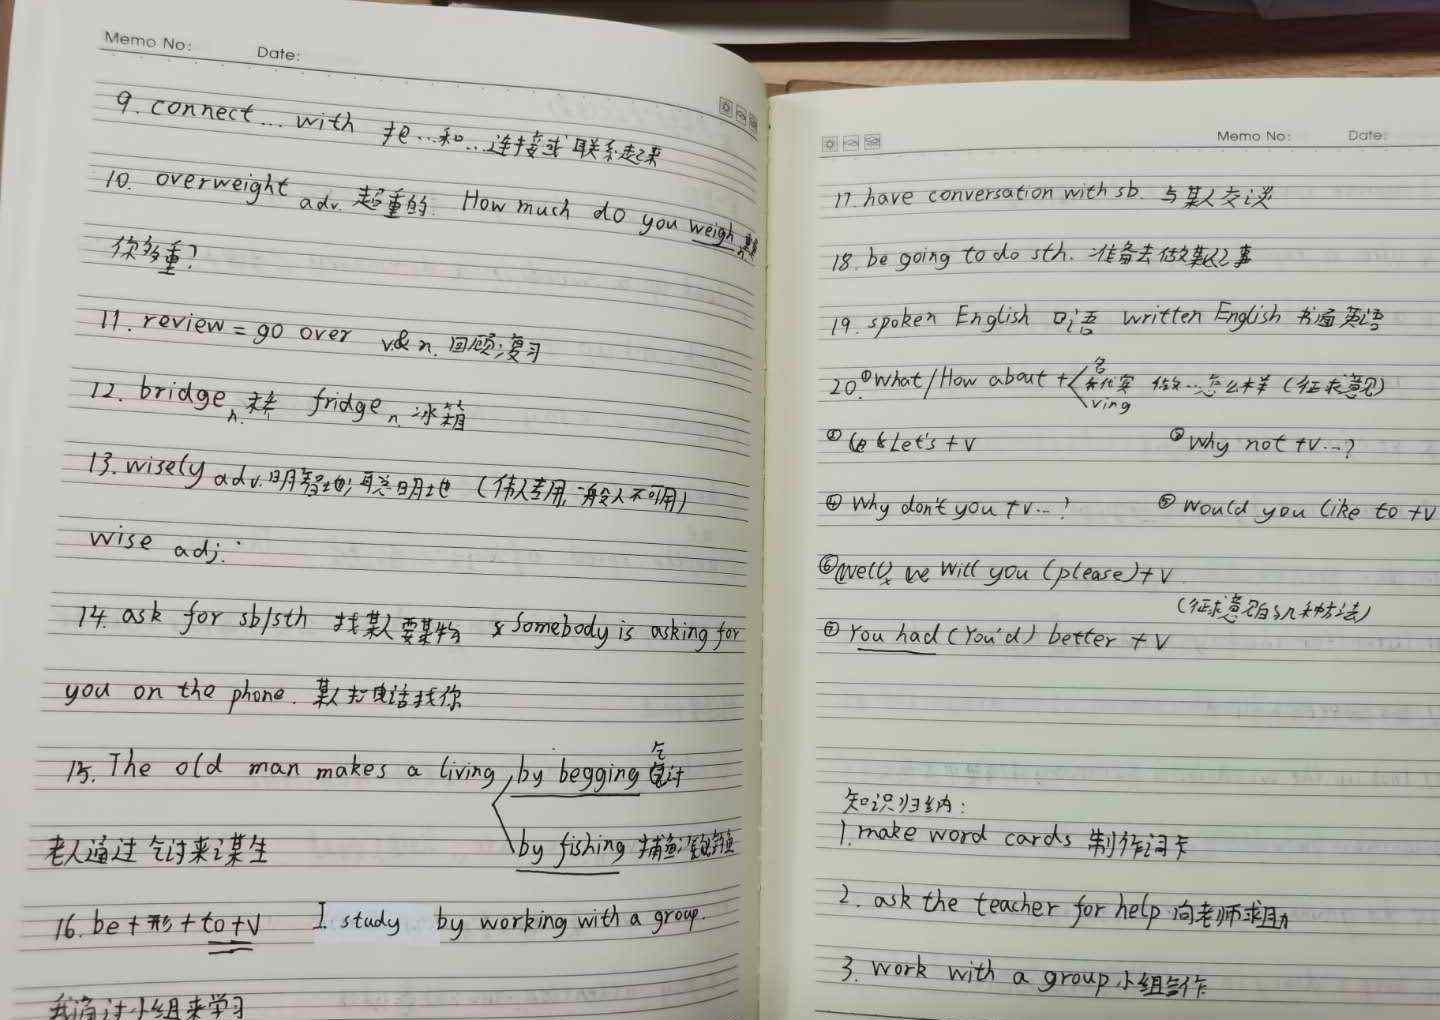 Memo No: Date:
9. connect... with 把...和...连接或联系起来
10. overweight adv. 超重的. How much do you weigh
你多重?
11. review = go over v.& n. 回顾;复习
12. bridge n. fridge n 冰箱
13. wisely adv. 明智地; 聪明地 (伟人专用, 一般人不可用)
wise adj.
14. ask for sb/sth 找某人要某物 & Somebody is asking for
you on the phone. 某人打电话找你
15. The old man makes a living by begging 乞讨
老人通过乞讨来谋生 by fishing 捕鱼
16. be + 形 + to + V I study by working with a group.
我通过小组来学习
Memo No: Date:
17. have conversation with sb. 与某人交谈
18. be going to do sth. 准备去做某事
19. spoken English 口语 written English 书面英语
20. ①What/How about + 名 ving 做...怎么样 (征求意见)
② Let's + V ③ Why not +V...?
④ Why don't you +V...? ⑤ Would you like to +V
⑥ Well, we will you (please) + V
(征求意见的几种方法)
⑦ You had (You'd) better + V
知识归纳:
1. make word cards 制作词卡
2. ask the teacher for help 向老师求助
3. work with a group 小组合作